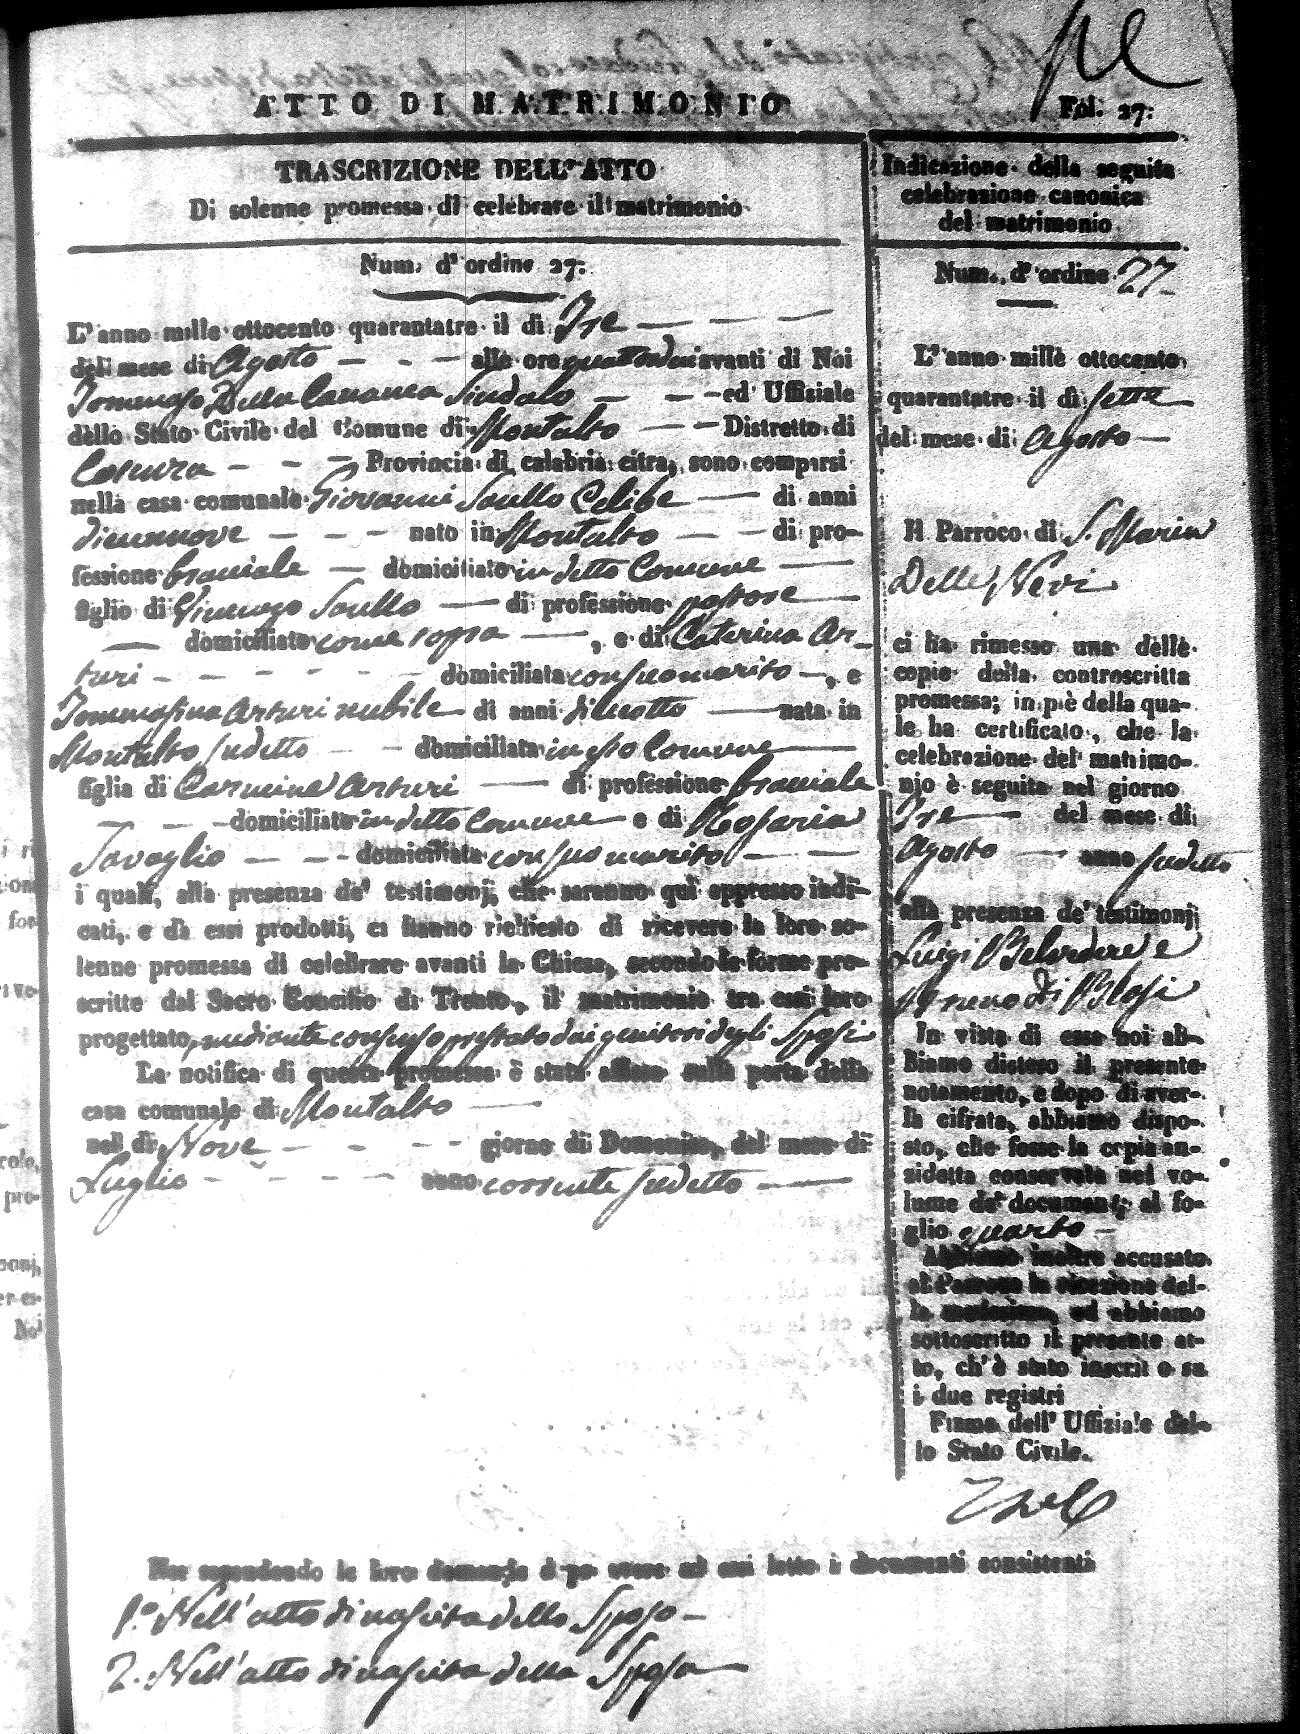 ATTO DI MATRIMONIO
Fol. 27.
TRASCRIZIONE DELL'ATTO
Di solenne promessa di celebrare il matrimonio
Num. d'ordine 27.
L'anno mille ottocento quarantatre il dì Tre
del mese di Agosto alle ore quattordici avanti di Noi
Tommaso Della Sindaco ed Uffiziale
dello Stato Civile del Comune di Montalto Distretto di
Cosenza Provincia di calabria citra, sono comparsi
nella casa comunale Giovanni Scullo Celibe di anni
diecinnove nato in Montalto di pro-
fessione bracciale domiciliato in detto Comune
figlio di Vincenzo Scullo di professione pastore
domiciliato come sopra, e di Caterina Ar-
turi domiciliata con suo marito, e
Tommasina Arturi nubile di anni diciotto nata in
Montalto sudetto domiciliata in esso Comune
figlia di Carmine Arturi di professione bracciale
domiciliato in detto Comune e di Rosaria
Tavoglio domiciliata con suo marito
i quali, alla presenza de' testimonj, che saranno qui appresso indi-
cati, e da essi prodotti, ci hanno richiesto di ricevere la loro so-
lenne promessa di celebrare avanti la Chiesa, secondo le forme pre-
scritte dal Sacro Concilio di Trento, il matrimonio tra essi loro
progettato, mediante consenso prestato dai genitori degli Sposi
La notifica di questa promessa è stata affissa sulla porta della
casa comunale di Montalto
nel dì Nove giorno di Domenica, del mese di
Luglio anno corrente sudetto
Indicazione della seguita
celebrazione canonica
del matrimonio.
Num. d'ordine 27
L'anno mille ottocento
quarantatre il dì sette
del mese di Agosto
Il Parroco di S. Maria
Delle Nevi
ci ha rimesso una delle
copie della controscritta
promessa; in piè della qua-
le ha certificato, che la
celebrazione del matrimo-
nio è seguita nel giorno
Tre del mese di
Agosto anno sudetto
alla presenza de' testimonj
Luigi Belvedere e
di Blasi
In vista di essa noi ab-
biamo disteso il presente
notamento, e dopo di aver-
la cifrata, abbiamo dispo-
sto, che fosse la copia an-
zidetta conservata nel vo-
lume de' documenti al fo-
glio quarto
Abbiamo inoltre accusato
al Parroco la ricezione del-
la medesima, ed abbiamo
sottoscritto il presente at-
to, ch'è stato inscritto su
i due registri
Firma dell' Uffiziale del-
lo Stato Civile.
Noi secondando le loro domande dopo avere ad essi letto i documenti consistenti
1.° Nell'atto di nascita dello Sposo
2. Nell'atto di nascita della Sposa